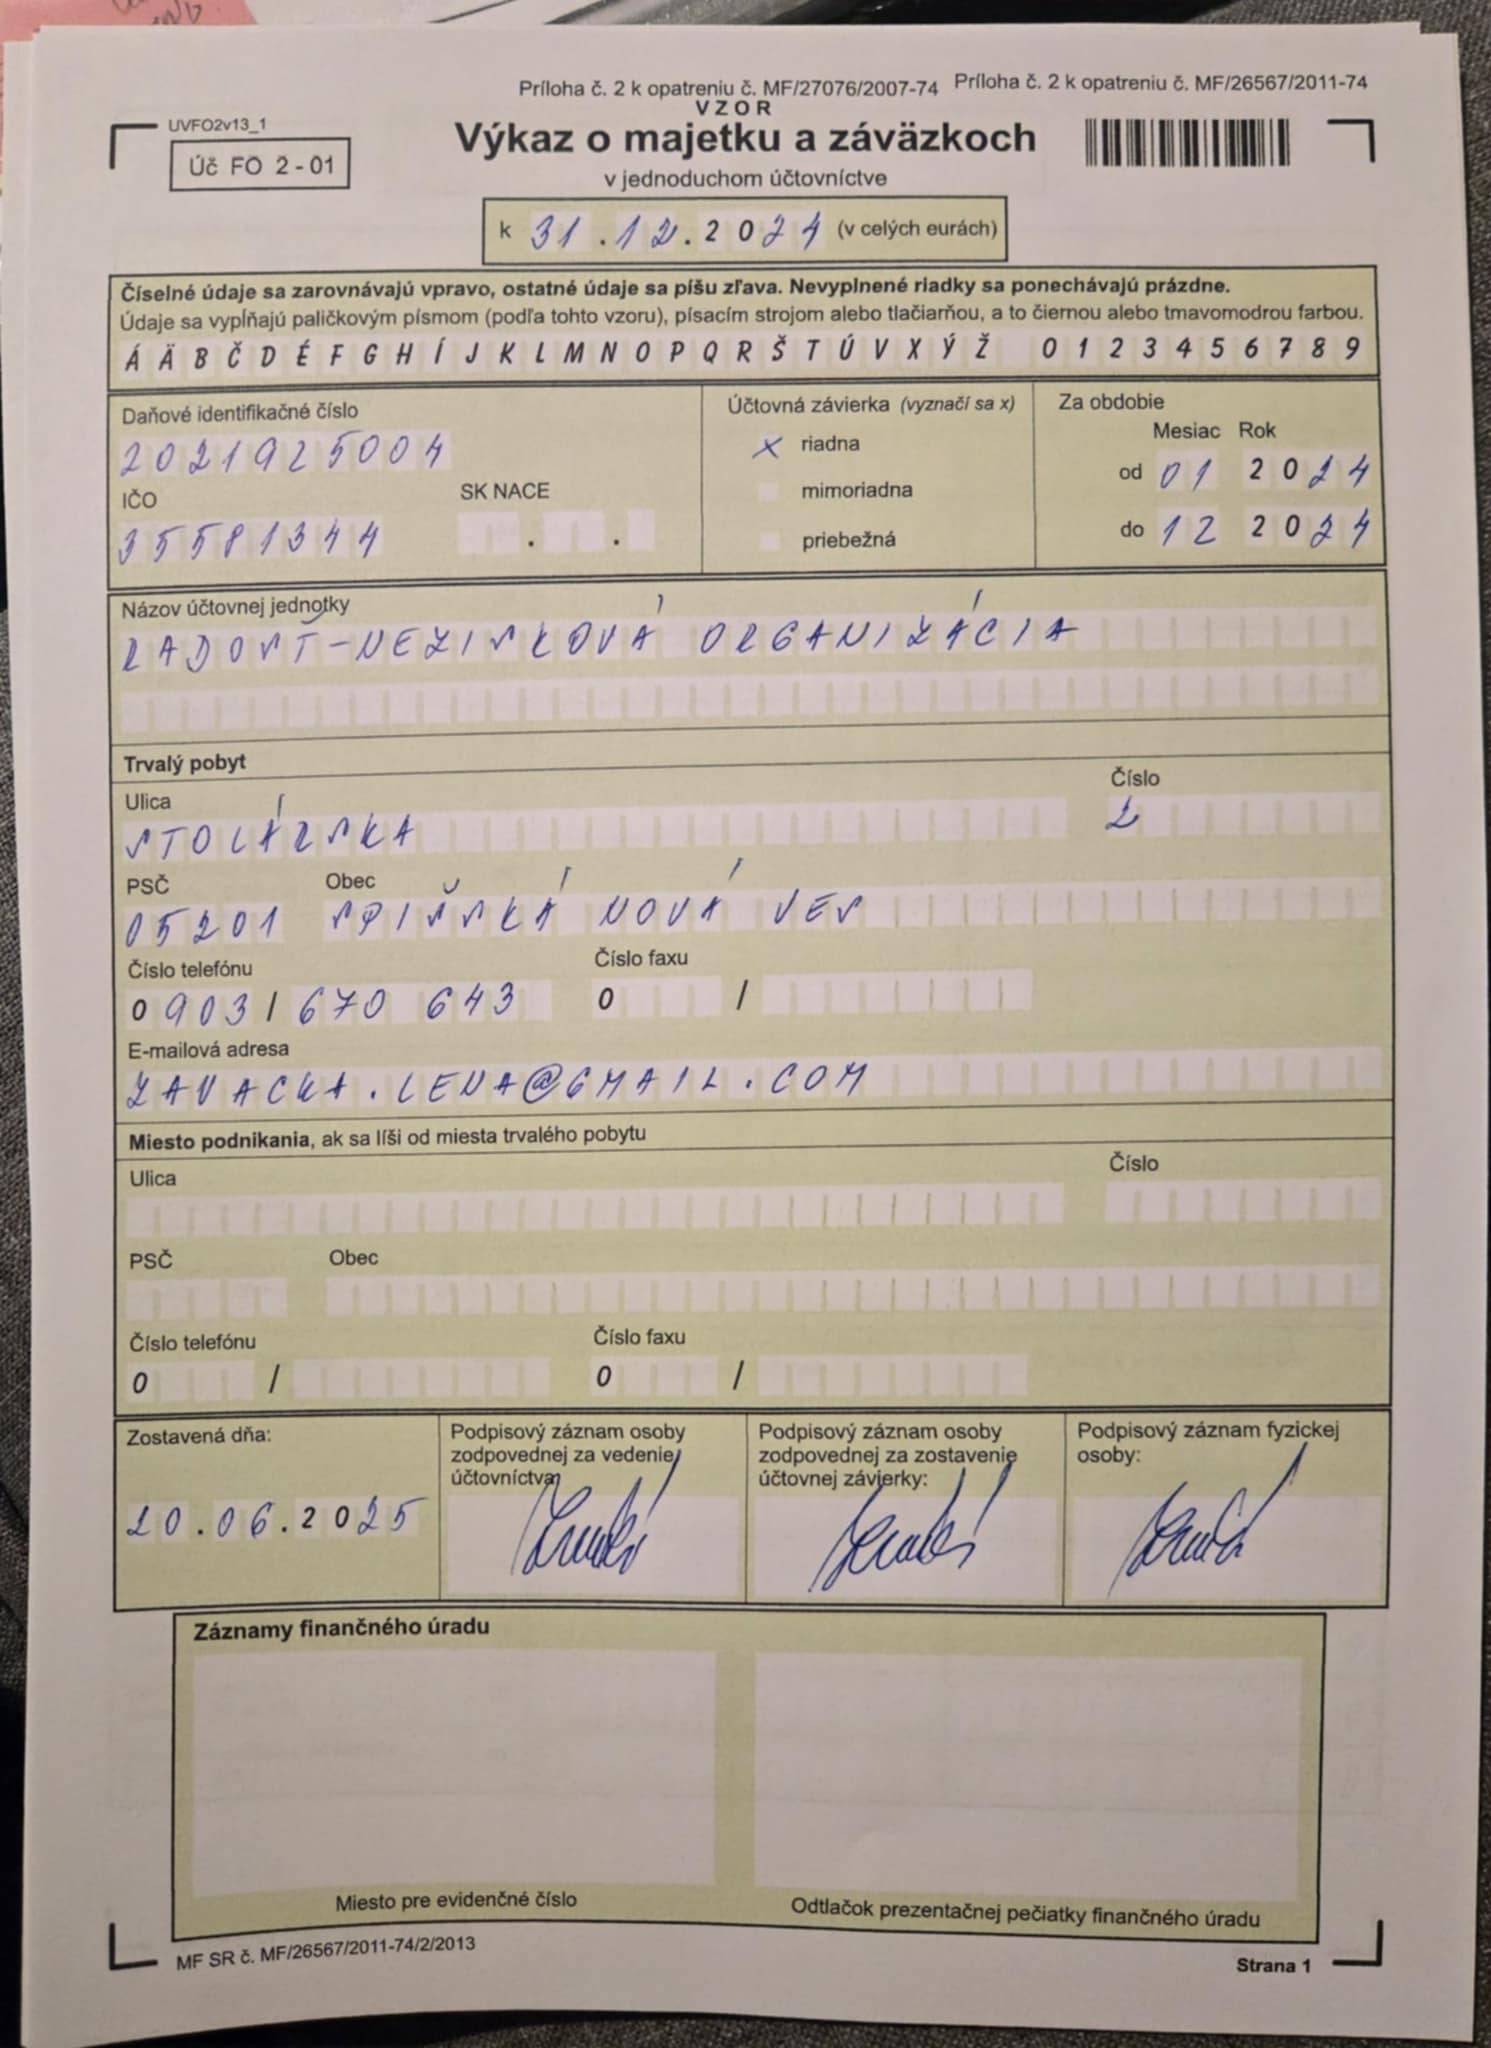 Príloha č. 2 k opatreniu č. MF/27076/2007-74 Príloha č. 2 k opatreniu č. MF/26567/2011-74
VZOR
UVFO2v13_1
Úč FO 2 - 01
Výkaz o majetku a záväzkoch
v jednoduchom účtovníctve
k 31.12.2024 (v celých eurách)
Číselné údaje sa zarovnávajú vpravo, ostatné údaje sa píšu zľava. Nevyplnené riadky sa ponechávajú prázdne.
Údaje sa vypĺňajú paličkovým písmom (podľa tohto vzoru), písacím strojom alebo tlačiarňou, a to čiernou alebo tmavomodrou farbou.
Á Ä B Č D É F G H Í J K L M N O P Q R Š T Ú V X Ý Ž 0 1 2 3 4 5 6 7 8 9
Daňové identifikačné číslo
2021925004
IČO SK NACE
35581344 . .
Účtovná závierka (vyznačí sa x)
x riadna
mimoriadna
priebežná
Za obdobie
Mesiac Rok
od 01 2024
do 12 2024
Názov účtovnej jednotky
RADOSŤ-NEZISKOVÁ ORGANIZÁCIA
Trvalý pobyt
Ulica Číslo
STOLÁRSKA 2
PSČ Obec
05201 SPIŠSKÁ NOVÁ VES
Číslo telefónu Číslo faxu
0903/670 643 0 /
E-mailová adresa
ZAVACKA.LENA@GMAIL.COM
Miesto podnikania, ak sa líši od miesta trvalého pobytu
Ulica Číslo
PSČ Obec
Číslo telefónu Číslo faxu
0 / 0 /
Zostavená dňa:
20.06.2025
Podpisový záznam osoby
zodpovednej za vedenie
účtovníctva:
Podpisový záznam osoby
zodpovednej za zostavenie
účtovnej závierky:
Podpisový záznam fyzickej
osoby:
Záznamy finančného úradu
Miesto pre evidenčné číslo
Odtlačok prezentačnej pečiatky finančného úradu
MF SR č. MF/26567/2011-74/2/2013
Strana 1